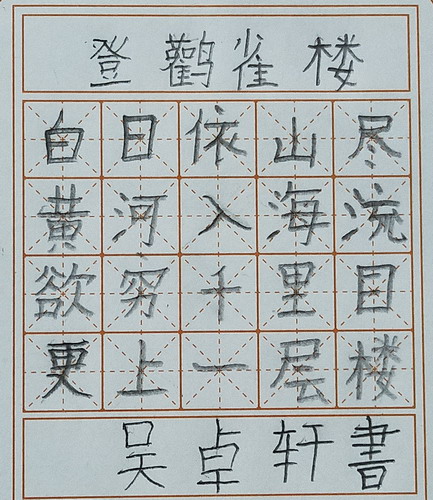 登鹳雀楼
白日依山尽
黄河入海流
欲穷千里目
更上一层楼
吴卓轩書